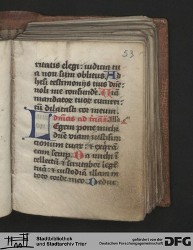 53
ritatis elegi: iudicia tu
a non sum oblitus. Ad
hesi testimoniis tuis dne:
noli me confunde.
mandatoꝝ tuoꝝ cucurri:
cu dilatasti cor meum.
Legem pone michi
dne viam iustifica
tionum tuarum: et
eam semp. Da michi
tellectu et scrutabor lege
tua: et custodiam illam in
toto corde meo.
Stadtbibliothek
und Stadtarchiv Trier
gefördert von der
Deutschen Forschungsgemeinschaft
DFG